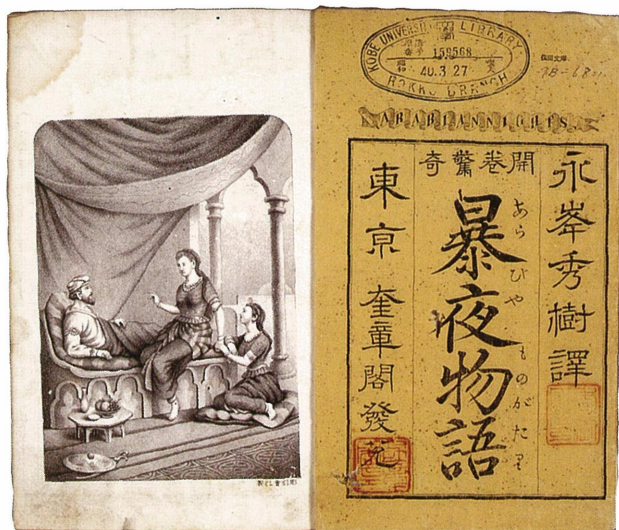 KOBE UNIVERSITY LIBRARY
159568
40.3.27
ROKKO BRANCH
ARABIAN NIGHTS.
開巻驚奇
永峯秀樹譯
暴夜物語
あらびやものがたり
東京 奎章閣發兌